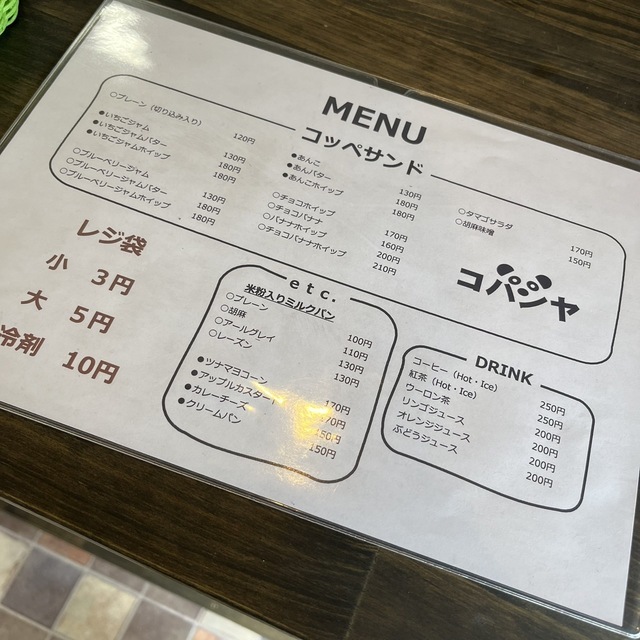 MENU
コッペサンド
○プレーン（切り込み入り） 120円
●いちごジャム 130円
●いちごジャムバター 180円
●いちごジャムホイップ 180円
○ブルーベリージャム 130円
○ブルーベリージャムバター 180円
○ブルーベリージャムホイップ 180円
●あんこ 130円
●あんバター 180円
●あんこホイップ 180円
○チョコホイップ 170円
○チョコバナナ 160円
○バナナホイップ 200円
○チョコバナナホイップ 210円
○タマゴサラダ 170円
○胡麻味噌 150円
コパンヤ
レジ袋
小 3円
大 5円
冷剤 10円
etc.
米粉入りミルクパン
○プレーン 100円
○胡麻 110円
○アールグレイ 130円
○レーズン 130円
●ツナマヨコーン 170円
●アップルカスタード
●カレーチーズ
●クリームパン 150円
DRINK
コーヒー（Hot・Ice） 250円
紅茶（Hot・Ice） 250円
ウーロン茶 200円
リンゴジュース 200円
オレンジジュース 200円
ぶどうジュース 200円